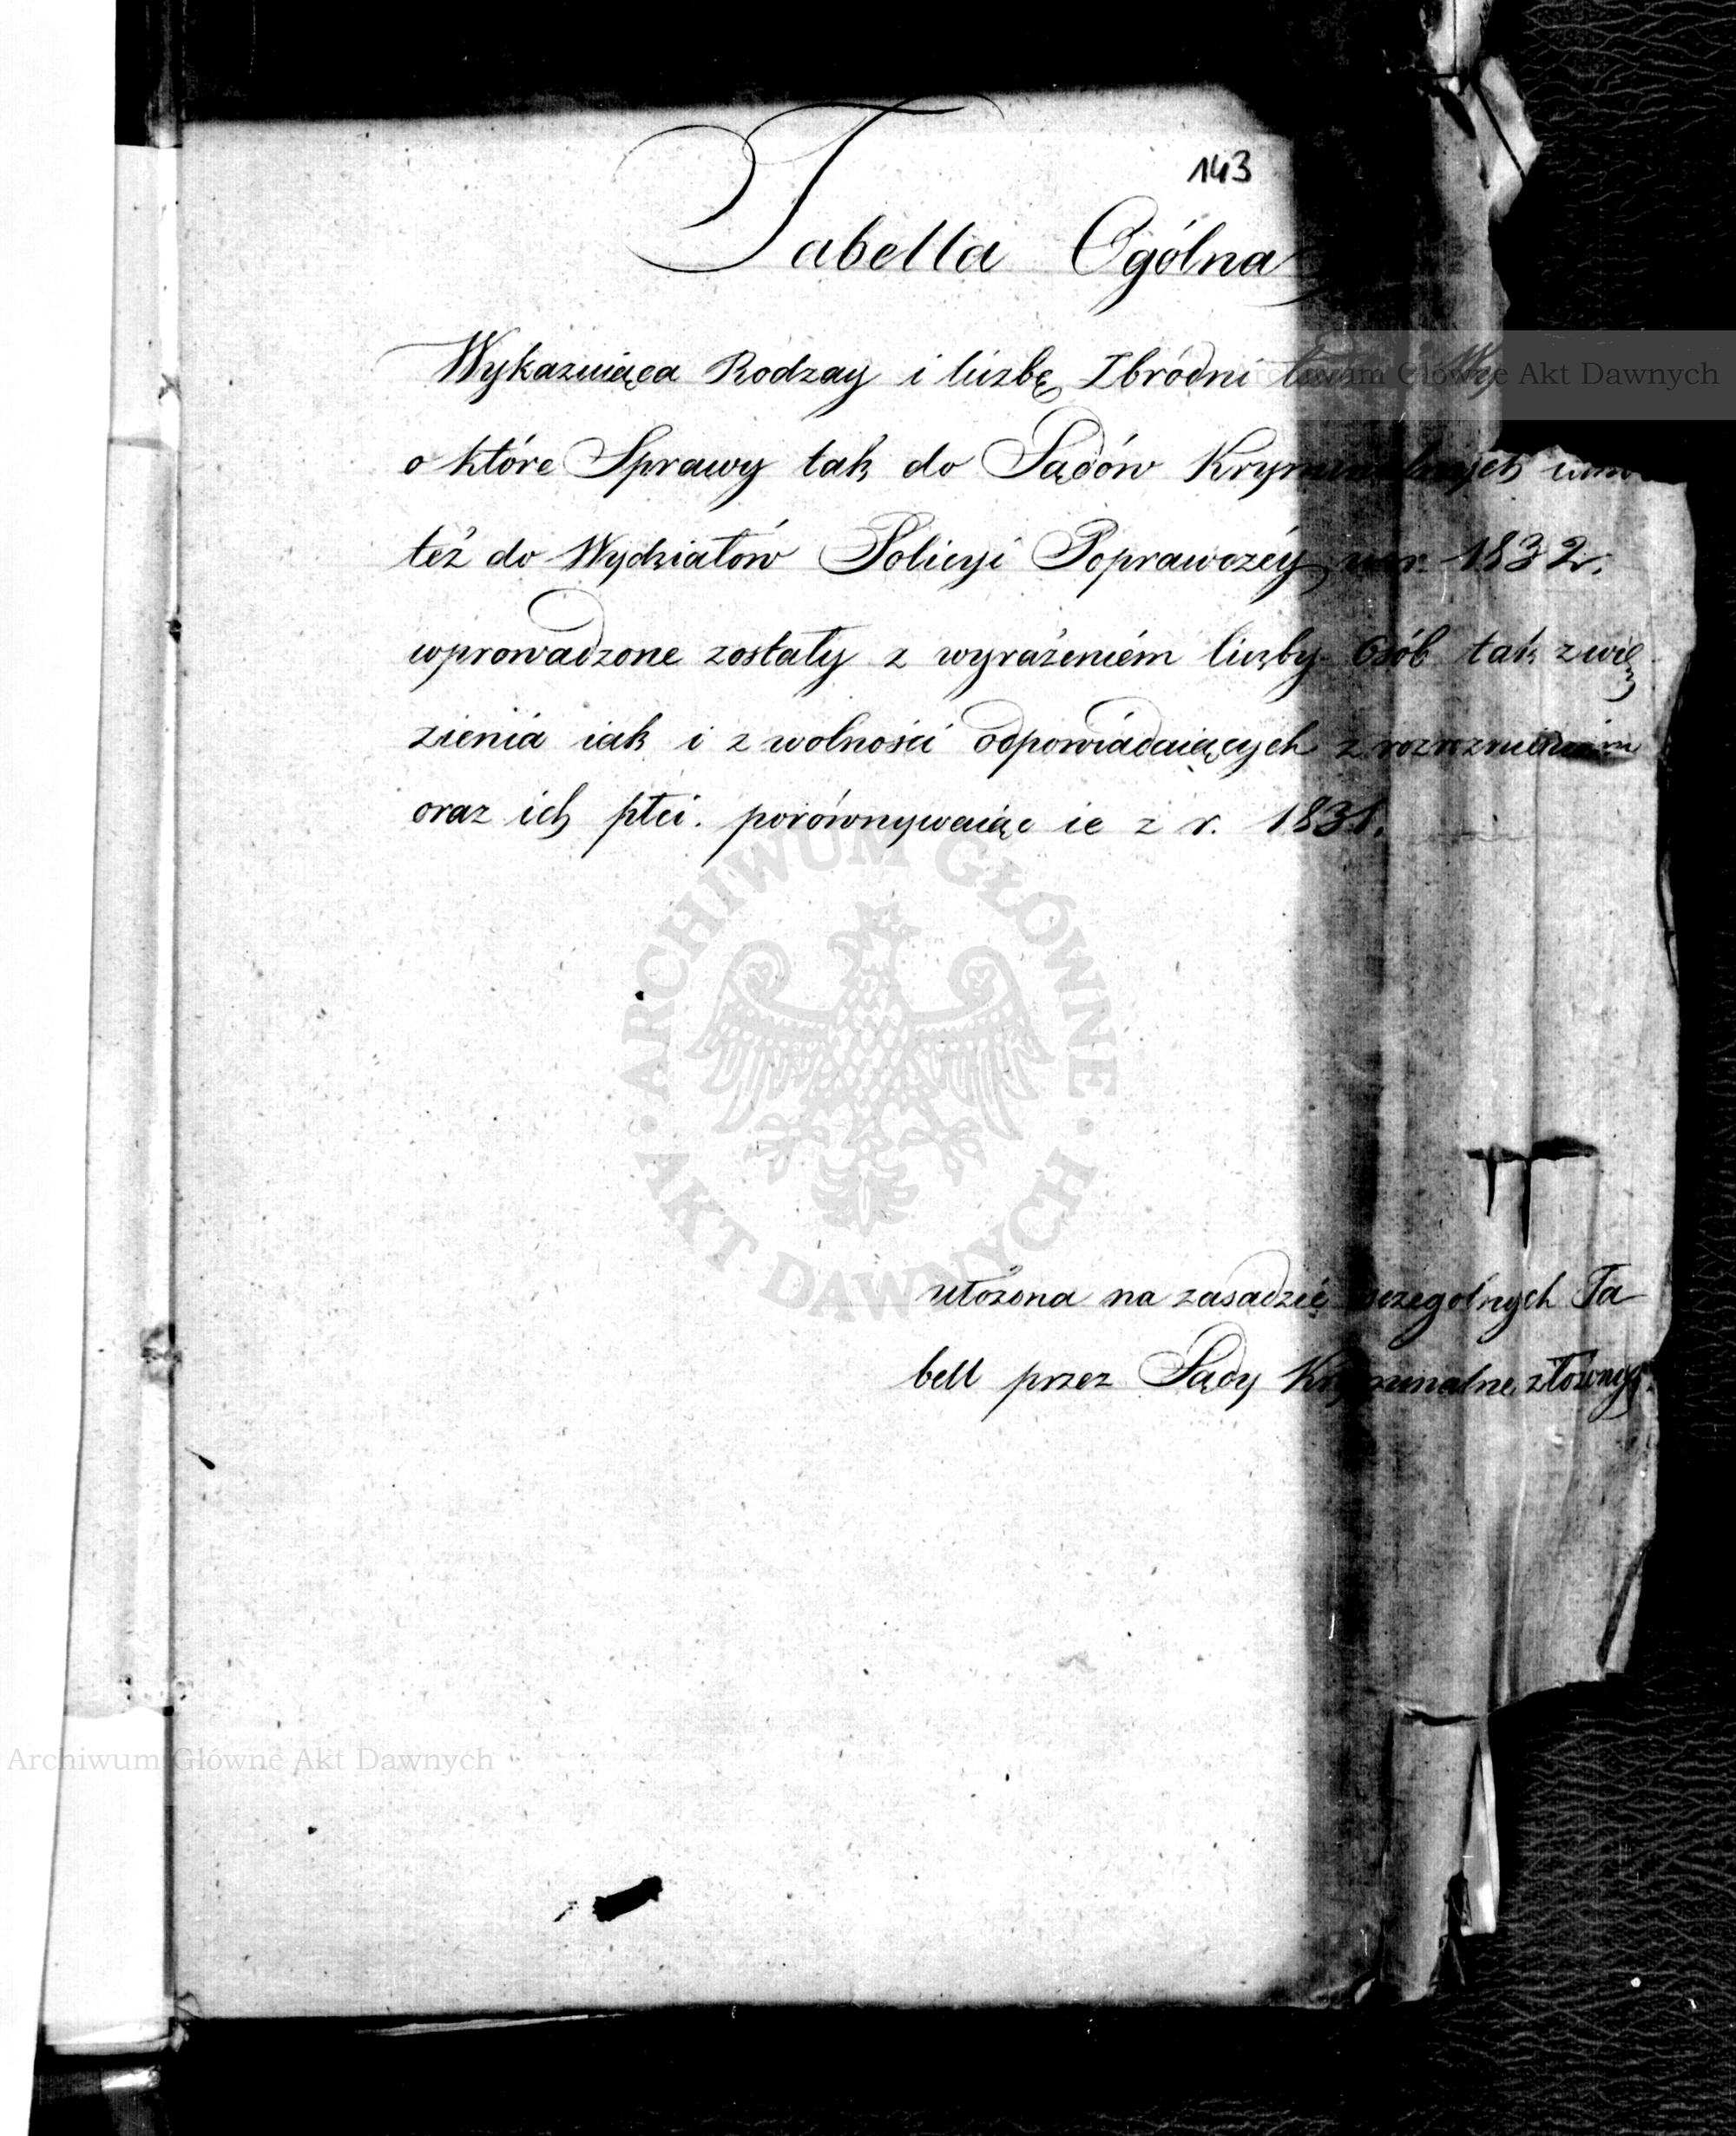 143
Tabella Ogólna
Wykazuiąca Rodzay i liczbę Zbrodni
o które Sprawy tak do Sądów Kryminalnych
też do Wydziałów Policyi Poprawczéy w r. 1832r.
wprowadzone zostały z wyrażeniém liczby Osób tak z wię
zienia iak i z wolności odpowiadaiących z rozroznieniem
oraz ich płci. porównywaiąc ie z r. 1831.
ułożona na zasadzie szczegolnych Ta
bell przez Sądy Kryminalne złożonych
Archiwum Główne Akt Dawnych
ARCHIWUM GŁÓWNE AKT DAWNYCH
Archiwum Główne Akt Dawnych